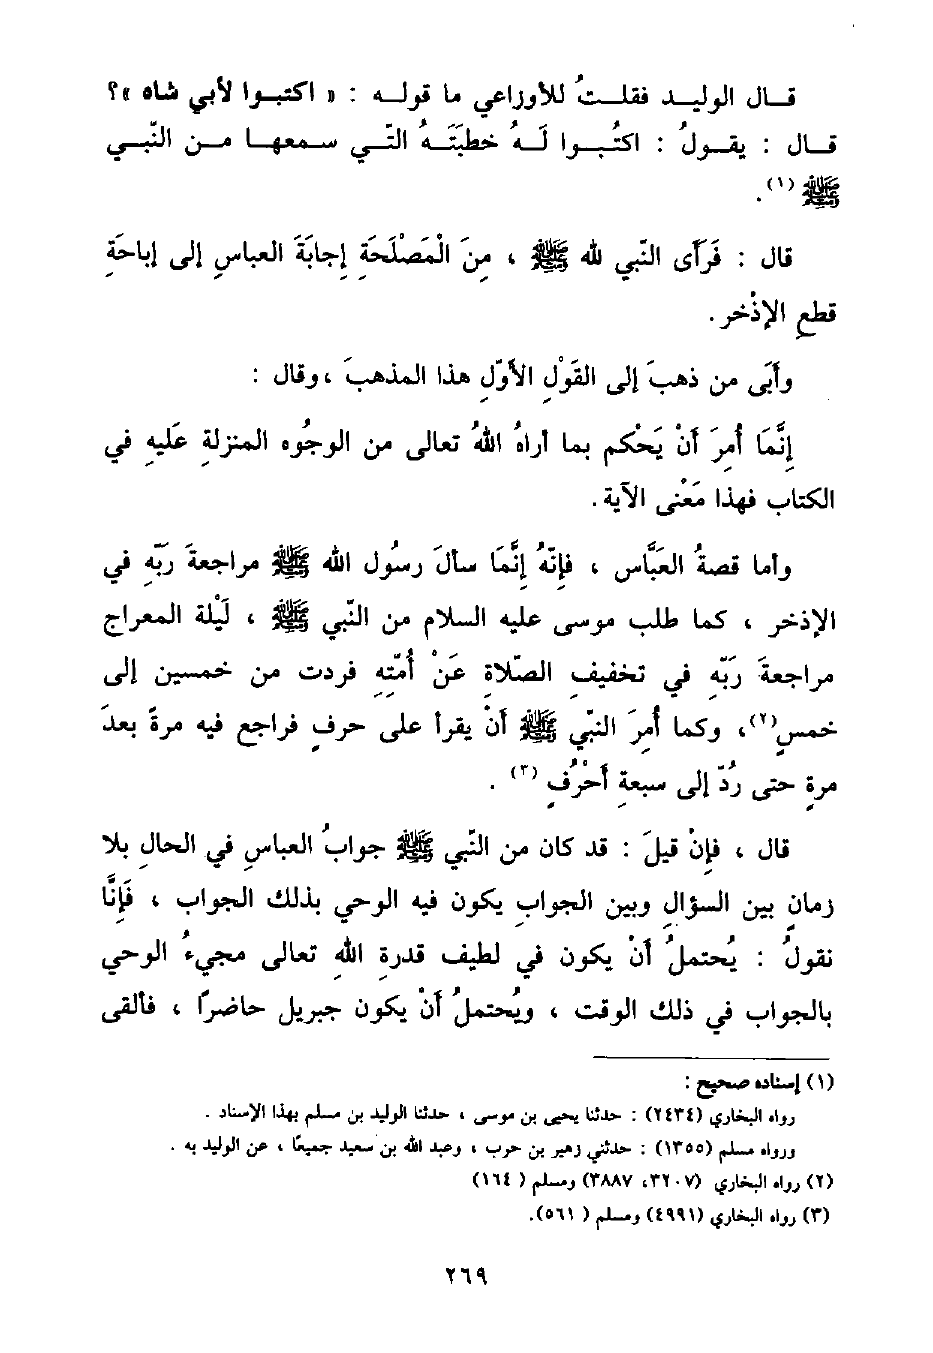 قـال الوليـد فقلـتُ للأوزاعي ما قولـه : « اكتبـوا لأبي شاه »؟
قـال : يقـولُ : اكتُبـوا لَـهُ خطبَتَـهُ التّـي سـمعهـا مـن النّبـي
ﷺ (١).
قال : فَرَأى النّبي لله ﷺ ، مِنَ الْمَصْلَحَةِ إجابَةَ العباسِ إلى إباحَةِ
قطعِ الإذْخر .
وأبَى من ذهبَ إلى القَوْلِ الأوّلِ هذا المذهبَ ،وقال :
إنَّمَا أُمِرَ أنْ يَحْكم بما أراهُ اللهُ تعالى من الوجُوه المنزلةِ عَليهِ في
الكتاب فهذا مَعْنى الآية .
وأما قصةُ العَبَّاسِ ، فإنّهُ إنَّمَا سألَ رسُول الله ﷺ مراجعةَ رَبّهِ في
الإذخر ، كما طلب موسى عليه السلام من النّبي ﷺ ، لَيْلة المعراج
مراجعةَ رَبّهِ في تخفيفِ الصّلاةِ عَنْ أُمّتِهِ فردت من خمسين إلى
خمسٍ(٢)، وكما أُمِرَ النّبي ﷺ أنْ يقرأ على حرفٍ فراجع فيه مرةً بعدَ
مرةٍ حتى رُدّ إلى سبعةِ أحْرُفٍ (٣) .
قال ، فإنْ قيلَ : قد كان من النّبي ﷺ جوابُ العباسِ في الحالِ بلا
زمانٍ بين السؤالِ وبين الجوابِ يكون فيه الوحي بذلك الجواب ، فَإنَّا
نقولُ : يُحتملُ أنْ يكون في لطيف قدرةِ اللهِ تعالى مجيءُ الوحي
بالجواب في ذلك الوقت ، ويُحتملُ أنْ يكون جبريل حاضرًا ، فألقى
(١) إسناده صحيح :
رواه البخاري (٢٤٣٤) : حدثنا يحيى بن موسى ، حدثنا الوليد بن مسلم بهذا الإسناد .
ورواه مسلم (١٣٥٥) : حدثني زهير بن حرب ، وعبد الله بن سعيد جميعًا ، عن الوليد به .
(٢) رواه البخاري (٣٢٠٧، ٣٨٨٧) ومسلم ( ١٦٤)
(٣) رواه البخاري (٤٩٩١) ومسلم ( ٥٦١).
٢٦٩